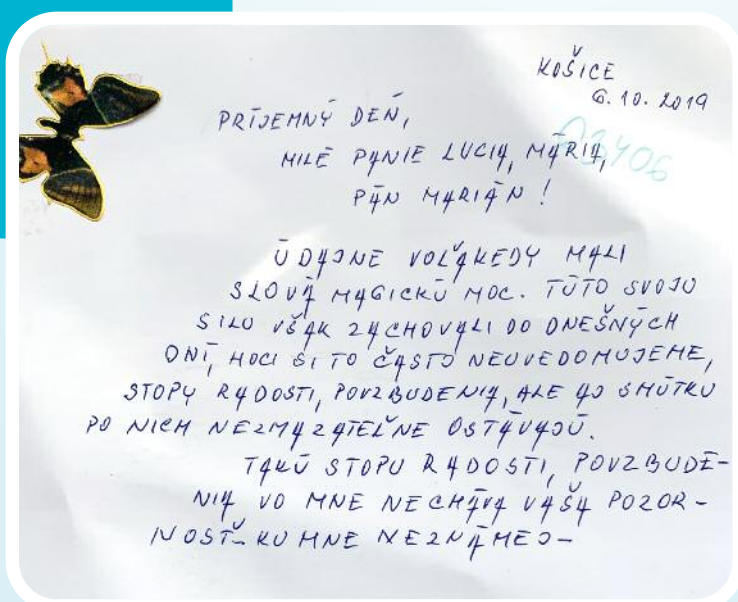 KOŠICE
6. 10. 2019
A3406
PRÍJEMNÝ DEŇ,
MILÉ PANIE LUCIA, MÁRIA,
PÁN MARIÁN !
ÚDAJNE VOĽAKEDY MALI
SLOVÁ MAGICKÚ MOC. TÚTO SVOJU
SILU VŠAK ZACHOVALI DO DNEŠNÝCH
DNÍ, HOCI SI TO ČASTO NEUVEDOMUJEME,
STOPY RADOSTI, POVZBUDENIA, ALE AJ SMÚTKU
PO NICH NEZMAZATEĽNE OSTÁVAJÚ.
TAKÚ STOPU RADOSTI, POVZBUDE-
NIA VO MNE NECHÁVA VAŠA POZOR-
NOSŤ – KU MNE NEZNÁMEJ –